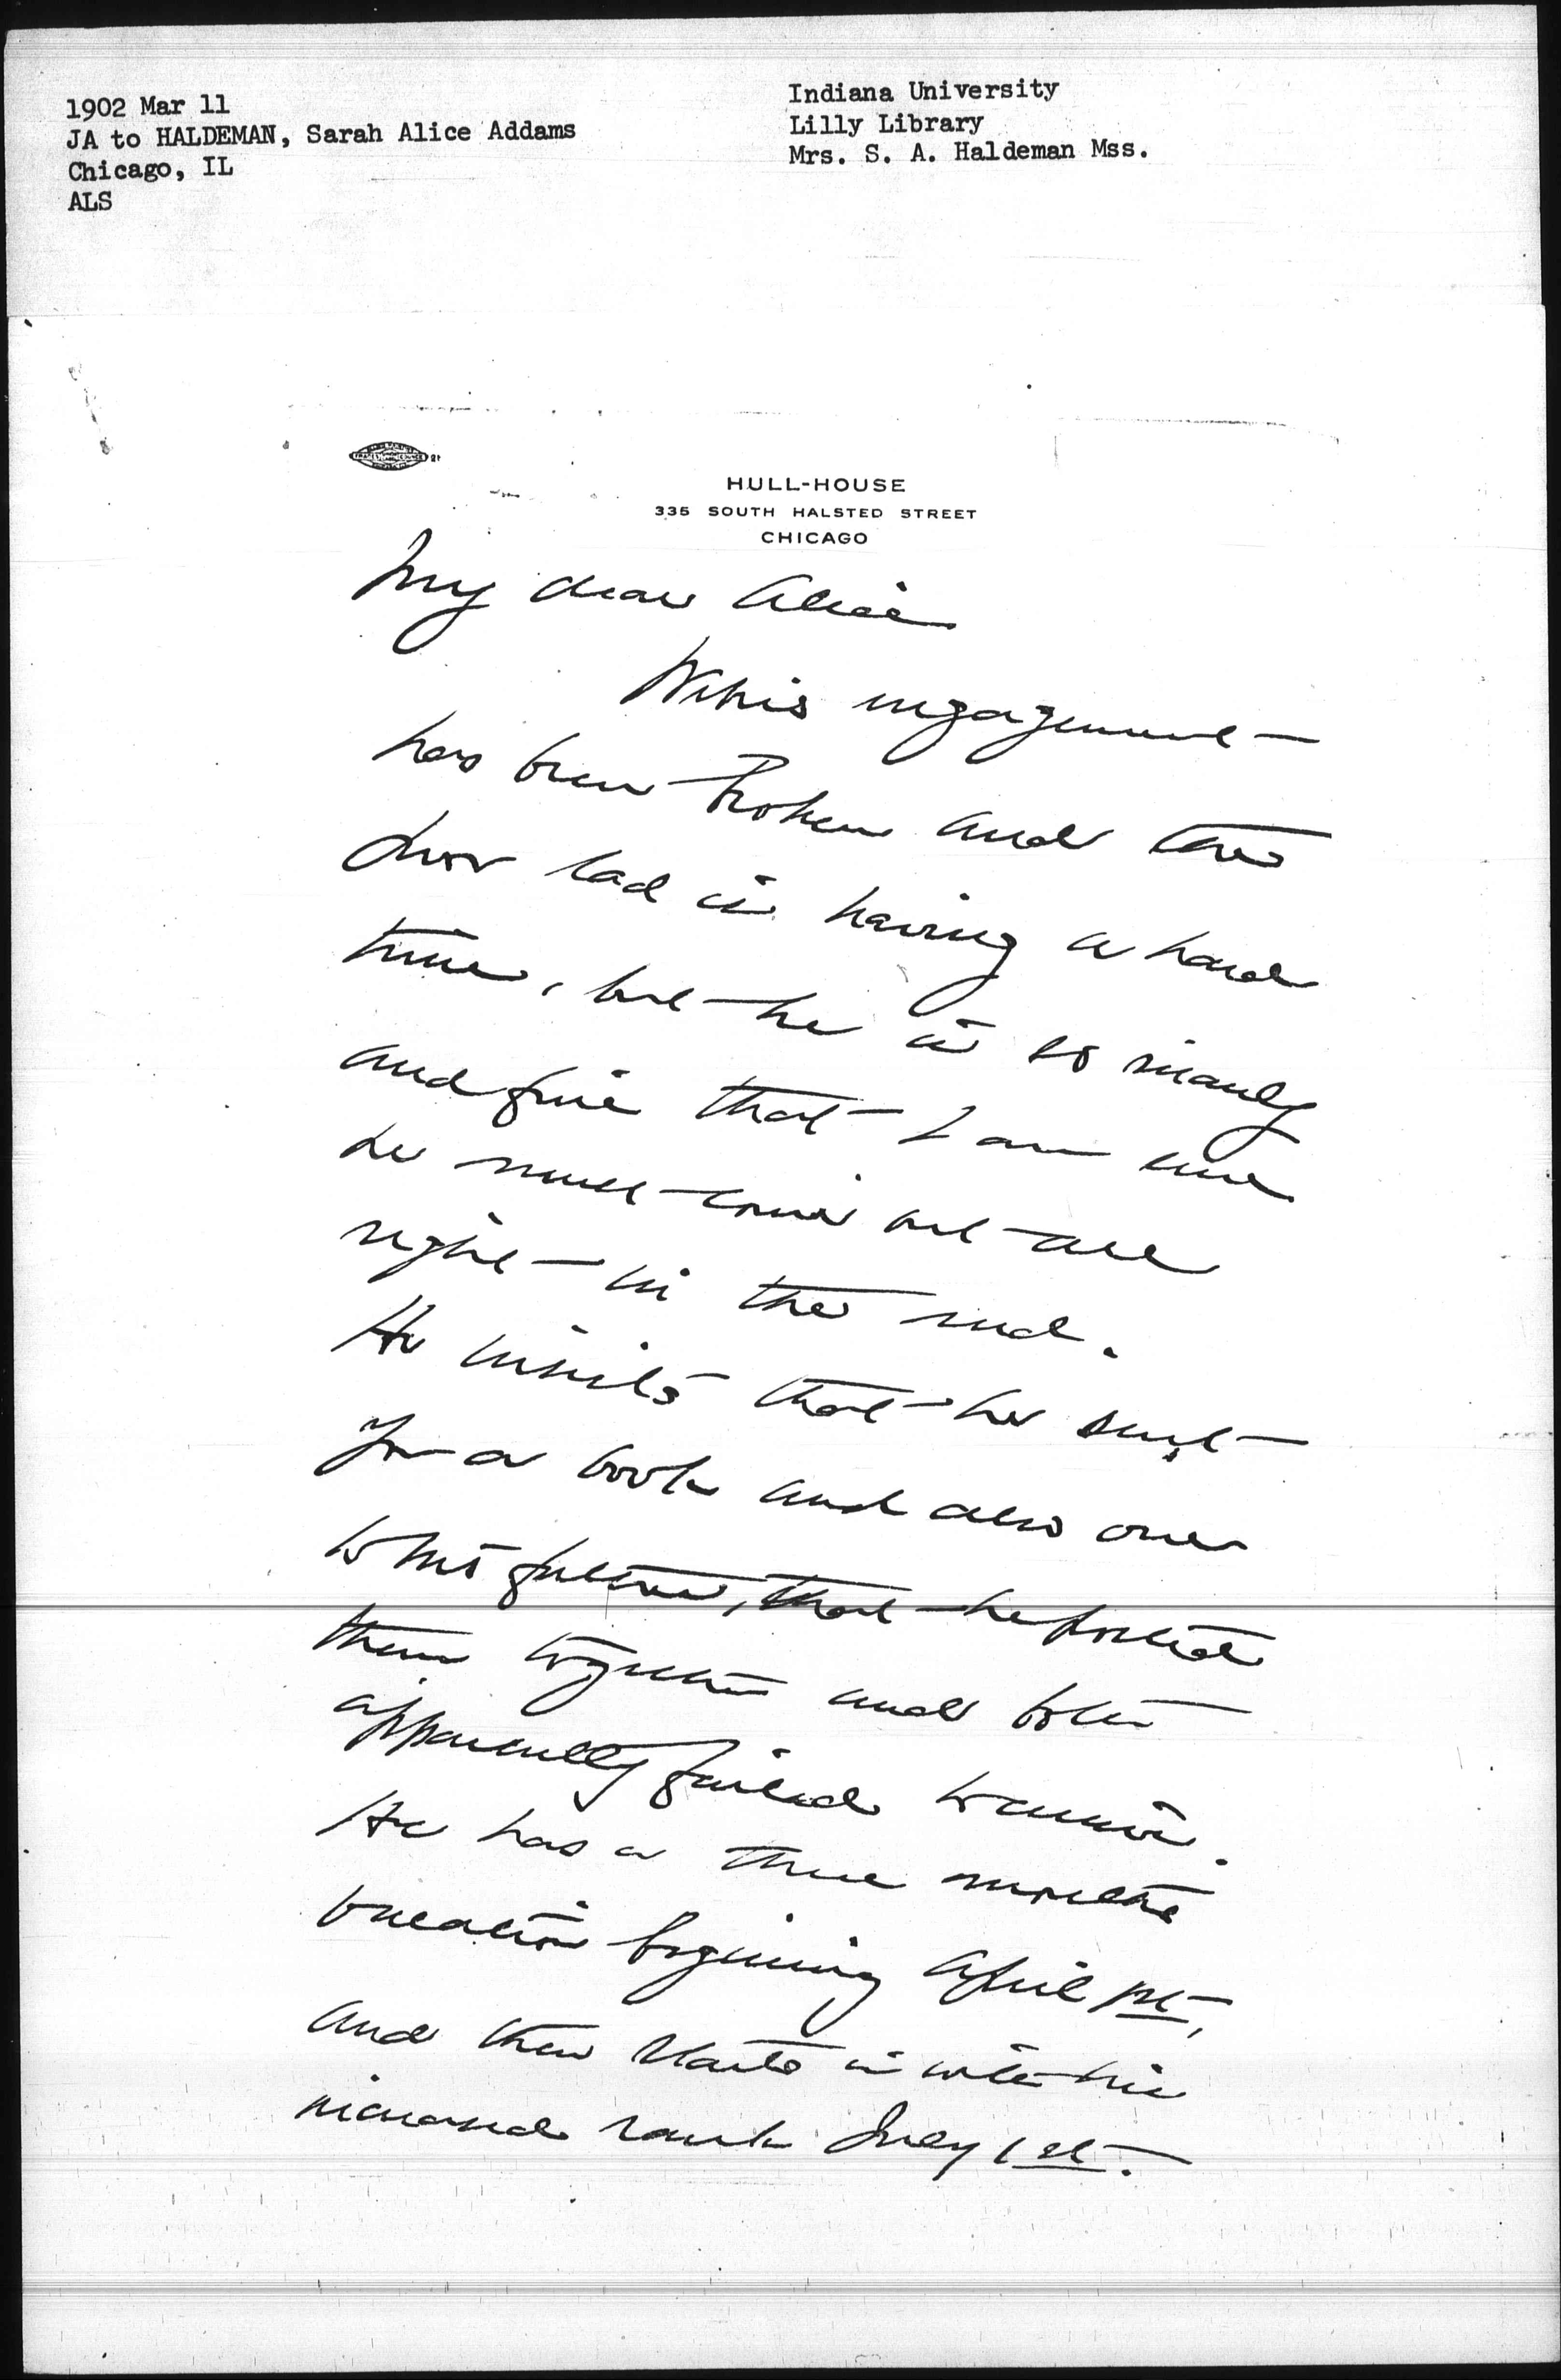 1902 Mar 11
JA to HALDEMAN, Sarah Alice Addams
Chicago, IL
ALS
Indiana University
Lilly Library
Mrs. S. A. Haldeman Mss.
HULL-HOUSE
335 SOUTH HALSTED STREET
CHICAGO
My dear Alice
Webers engagement
has been broken and the
poor lad is having a hard
time, but he is so manly
and fine that I am sure
he must come out all
right in the end.
He insists that he sent
you a book and also one
to his father, that he posted
them together and both
apparently failed to arrive.
He has a three months
vacation begining April 1st,
and then starts in with his
increased rank July 1st.